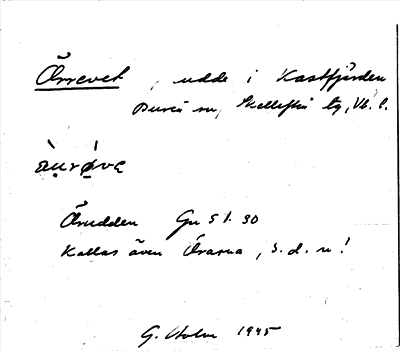 Örrevet, udde i Kastfjärden
Bureå sn, Skellefteå tg, Vb. l.
Örudden Gn 51. 30
Kallas även Örarna, s. d. n!
G. Holm 1945